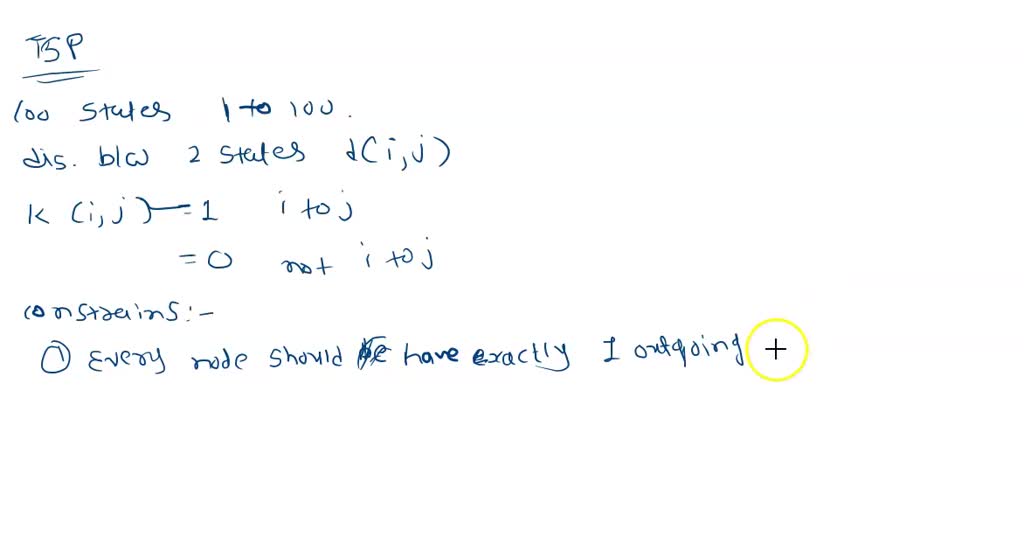 TSP
100 states 1 to 100.
dis. b/w 2 states d(i,j)
k (i,j) = 1 i to j
= 0 not i to j
constrains:-
① Every node should have exactly 1 outgoing